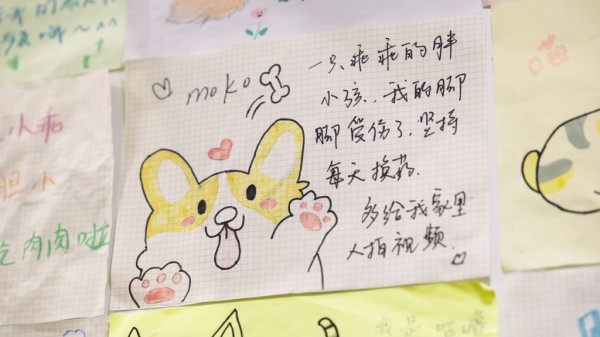 moko
一只乖乖的胖
小孩，我的脚
脚受伤了，坚持
每天换药.
多给我家里
人拍视频.
小乖
胆小
吃肉肉啦